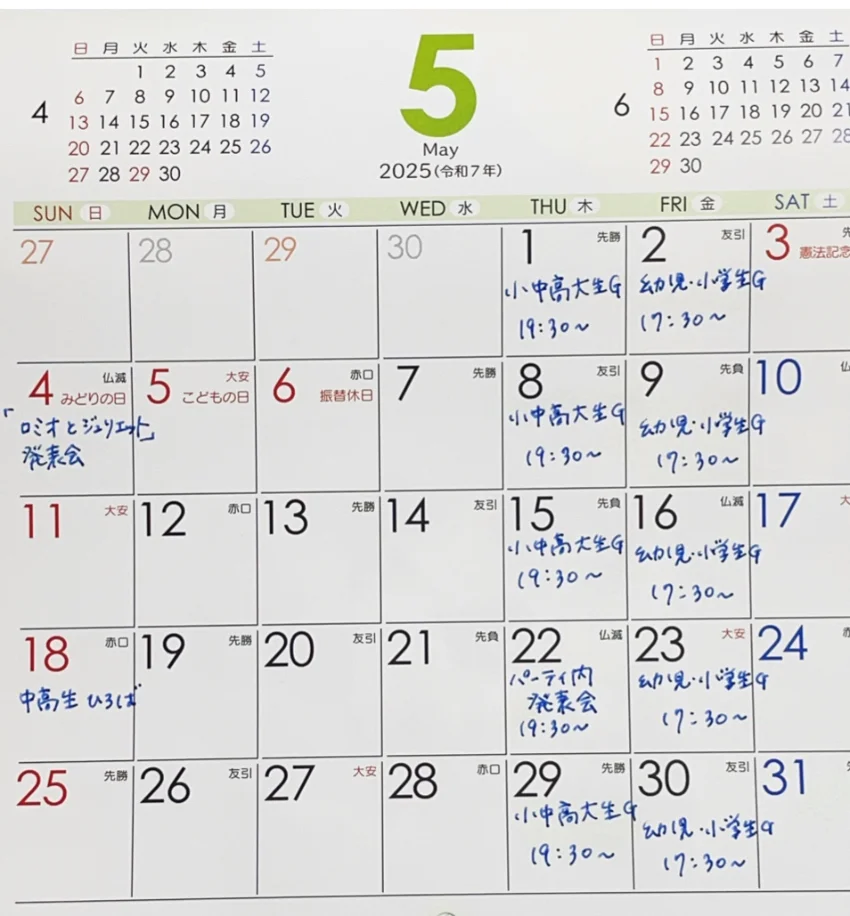 4
日 月 火 水 木 金 土
1 2 3 4 5
6 7 8 9 10 11 12
13 14 15 16 17 18 19
20 21 22 23 24 25 26
27 28 29 30
5
May
2025(令和7年)
6
日 月 火 水 木 金 土
1 2 3 4 5 6 7
8 9 10 11 12 13 14
15 16 17 18 19 20 21
22 23 24 25 26 27 28
29 30
SUN 日 MON 月 TUE 火 WED 水 THU 木 FRI 金 SAT 土
27 28 29 30 1 先勝 2 友引 3 先
憲法記念
小中高大生G 幼児・小学生G
19:30〜 17:30〜
4 仏滅 5 大安 6 赤口 7 先勝 8 友引 9 先負 10 仏
みどりの日 こどもの日 振替休日
「ロミオとジュリエット」 小中高大生G 幼児・小学生G
発表会 19:30〜 17:30〜
11 大安 12 赤口 13 先勝 14 友引 15 先負 16 仏滅 17 大
小中高大生G 幼児・小学生G
19:30〜 17:30〜
18 赤口 19 先勝 20 友引 21 先負 22 仏滅 23 大安 24 赤
中高生ひろば パーティ内 幼児・小学生G
発表会
19:30〜 17:30〜
25 先勝 26 友引 27 大安 28 赤口 29 先勝 30 友引 31
小中高大生G 幼児・小学生G
19:30〜 17:30〜